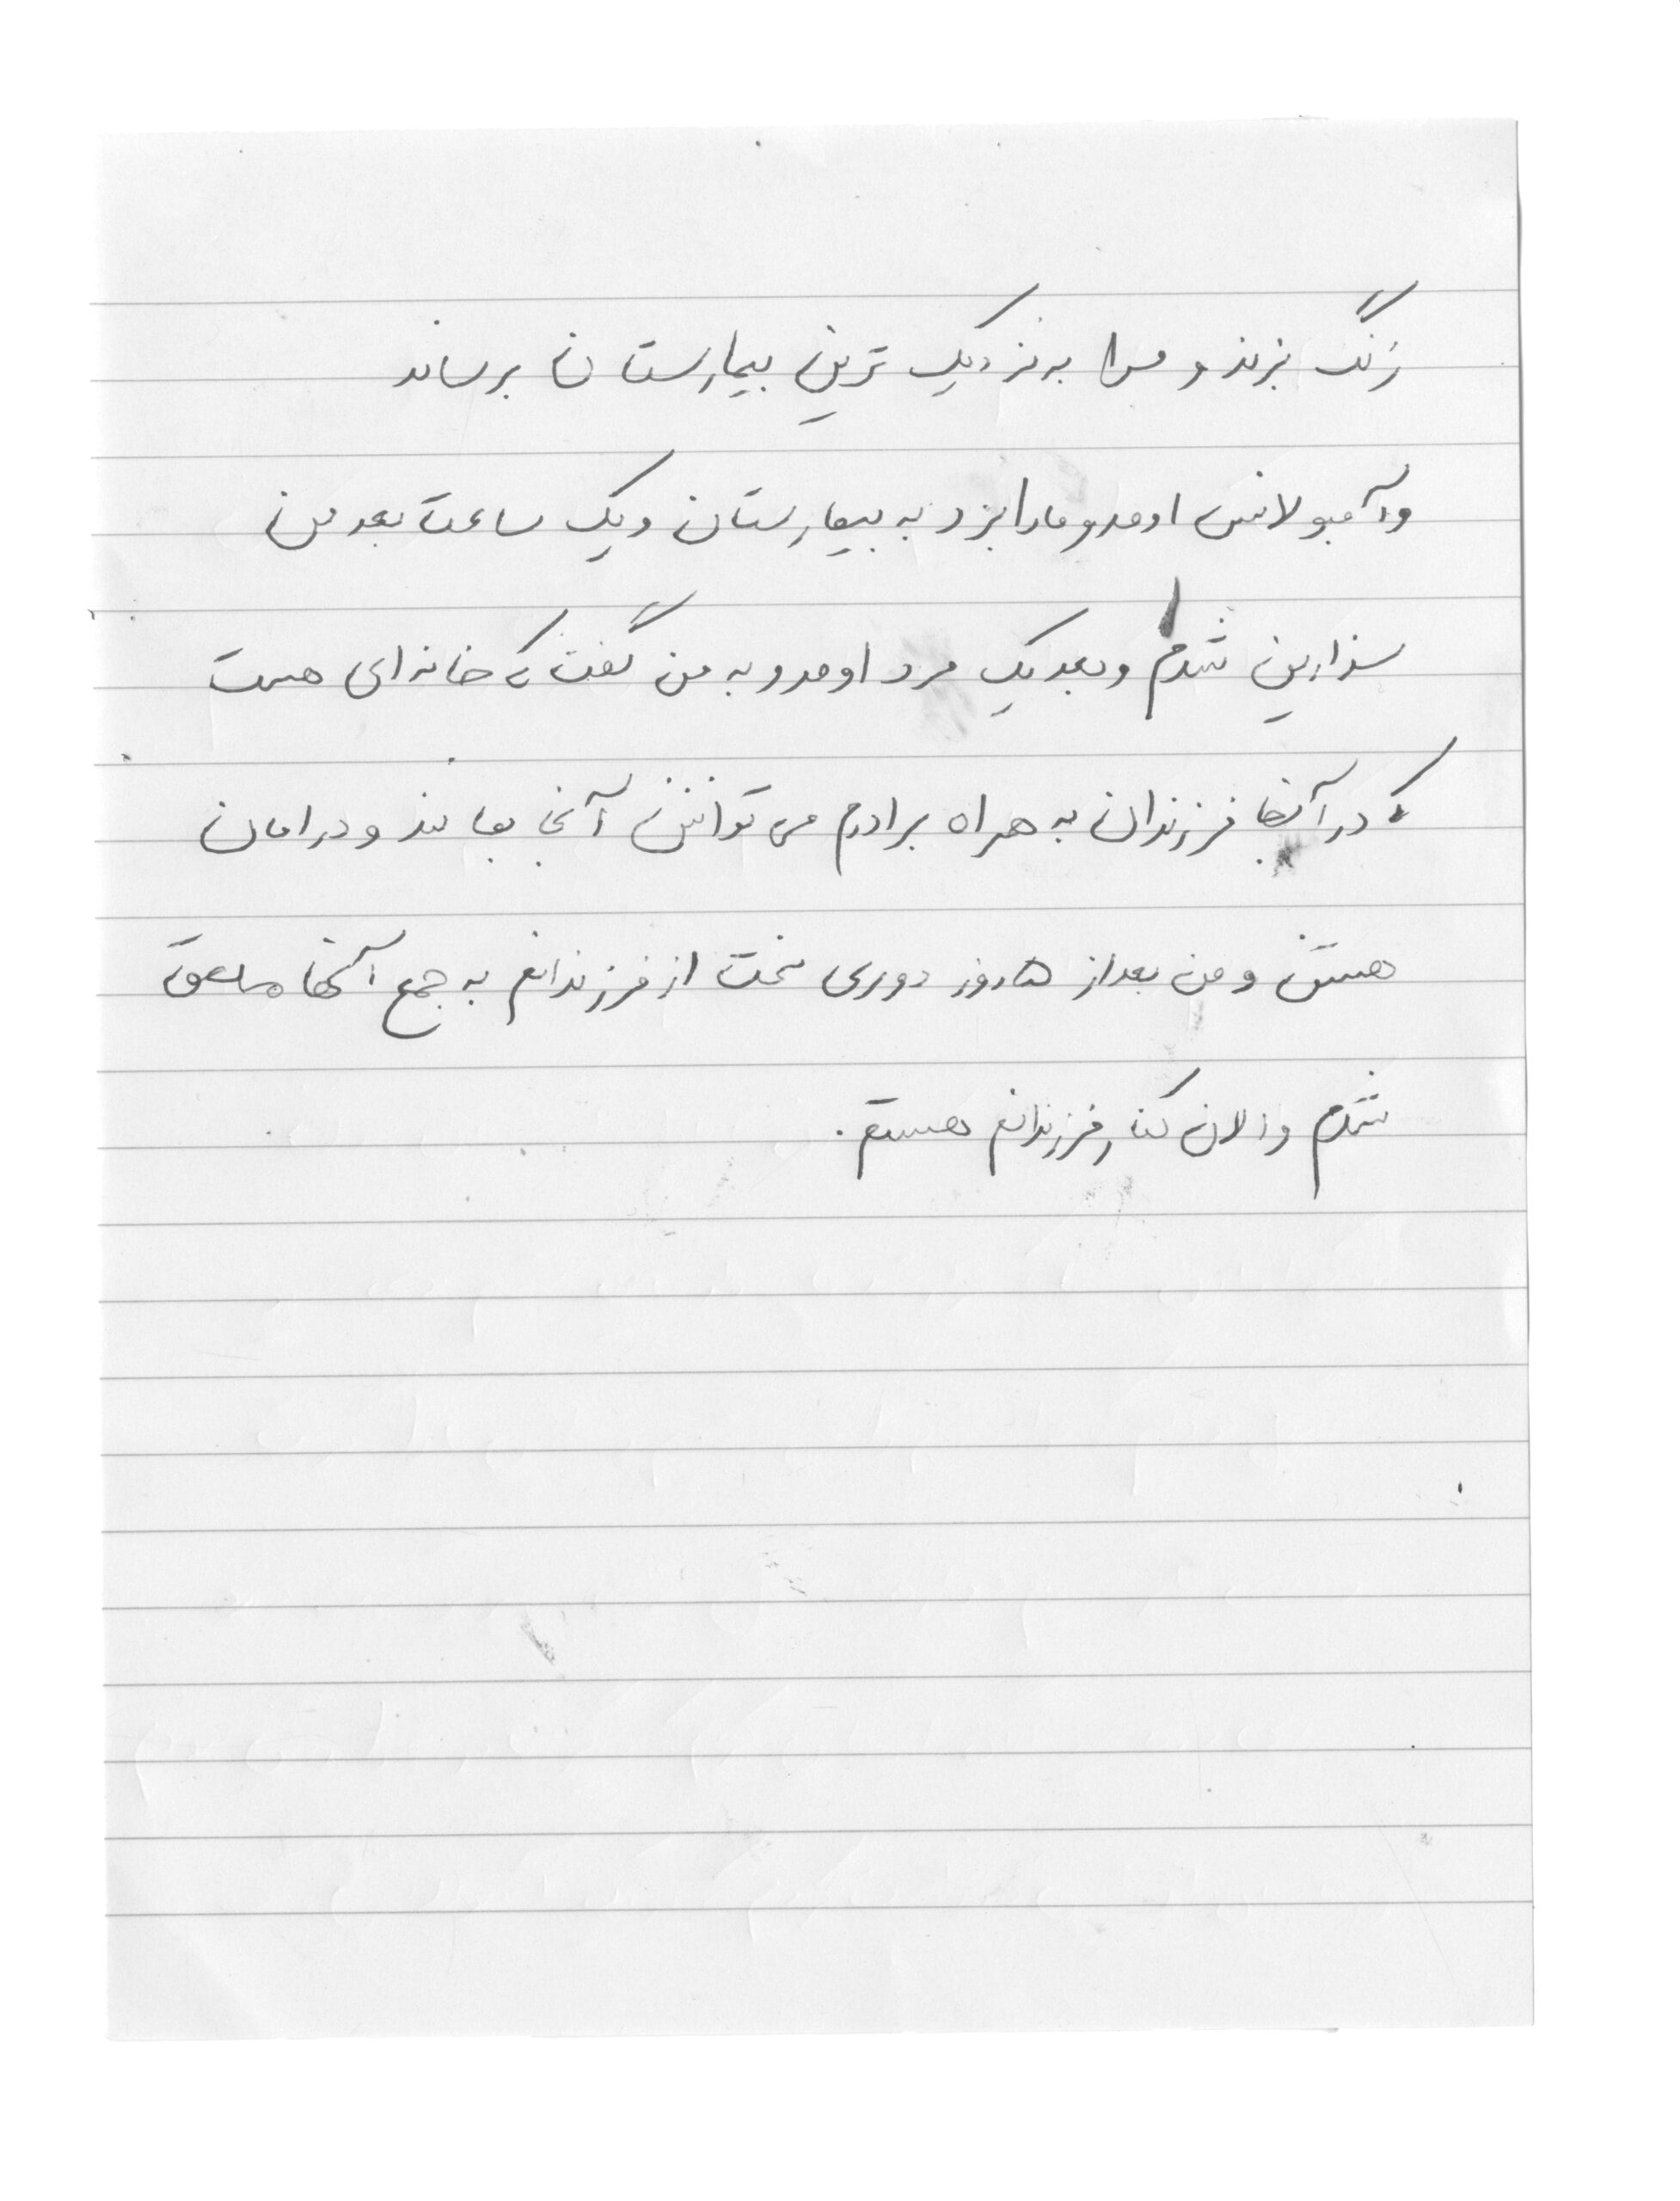 زنگ بزند و مرا به نزدیک ترین بیمارستان برساند
و آمبولانس اومد و مارا برد به بیمارستان و یک ساعت بعد من
سزارین شدم و بعد یک مرد اومد و به من گفت که خانه ای هست
که در آنجا فرزندان به همراه برادرم می توانن آنجا بمانند و در امان
هستن و من بعد از روز دوری سخت از فرزندانم به جمع آنها ملحق
شدم و الان کنار فرزندانم هستم.